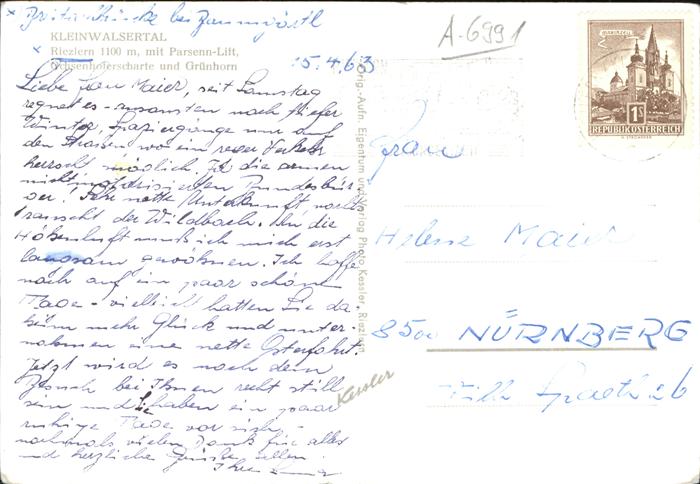 A-6991
KLEINWALSERTAL
Riezlern 1100 m, mit Parsenn-Lift,
Ochsenhoferscharte und Grünhorn
15.4.63
Liebe Frau Maier, seit Samstag
regnet es - ansonsten noch tiefer
Winter, Spaziergänge nur auf
den Strassen wo ein reger Verkehr
herrscht möglich. Ja die armen
nicht motorisierten Bundesbür-
ger! Sehr nette Unterkunft nachts
rauscht der Wildbach. An die
Höhenluft muß ich mich erst
langsam gewöhnen. Ich hoffe
noch auf ein paar schöne
Tage - vielleicht hatten Sie da-
heim mehr Glück und unter-
nahmen eine nette Osterfahrt.
Jetzt wird es nach dem
Besuch bei Ihnen recht still
sein und Sie haben ein paar
ruhige Tage vor sich -
nochmals vielen Dank für alles
und herzliche Grüße allen
Ihre
Orig.-Aufn. Eigentum und Verlag Photo Kessler, Riezlern
Kessler
MARIAZELL
1S
REPUBLIK ÖSTERREICH
Frau
Helene Maier
8500 NÜRNBERG